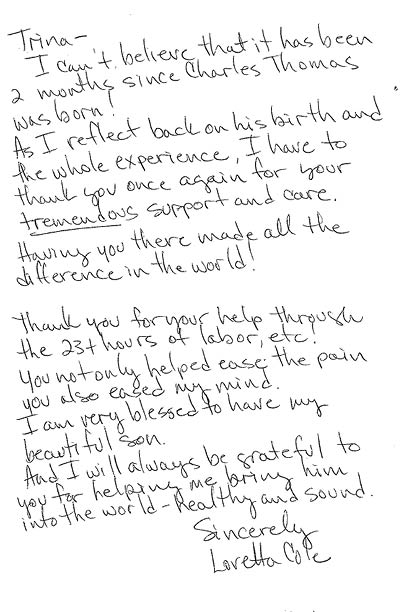 Trina-
I can't believe that it has been
2 months since Charles Thomas
was born!
As I reflect back on his birth and
the whole experience, I have to
thank you once again for your
tremendous support and care.
Having you there made all the
difference in the world!
Thank you for your help through
the 23+ hours of labor, etc.
You not only helped ease the pain
you also eased my mind.
I am very blessed to have my
beautiful son.
And I will always be grateful to
you for helping me bring him
into the world - healthy and sound.
Sincerely
Loretta Cole